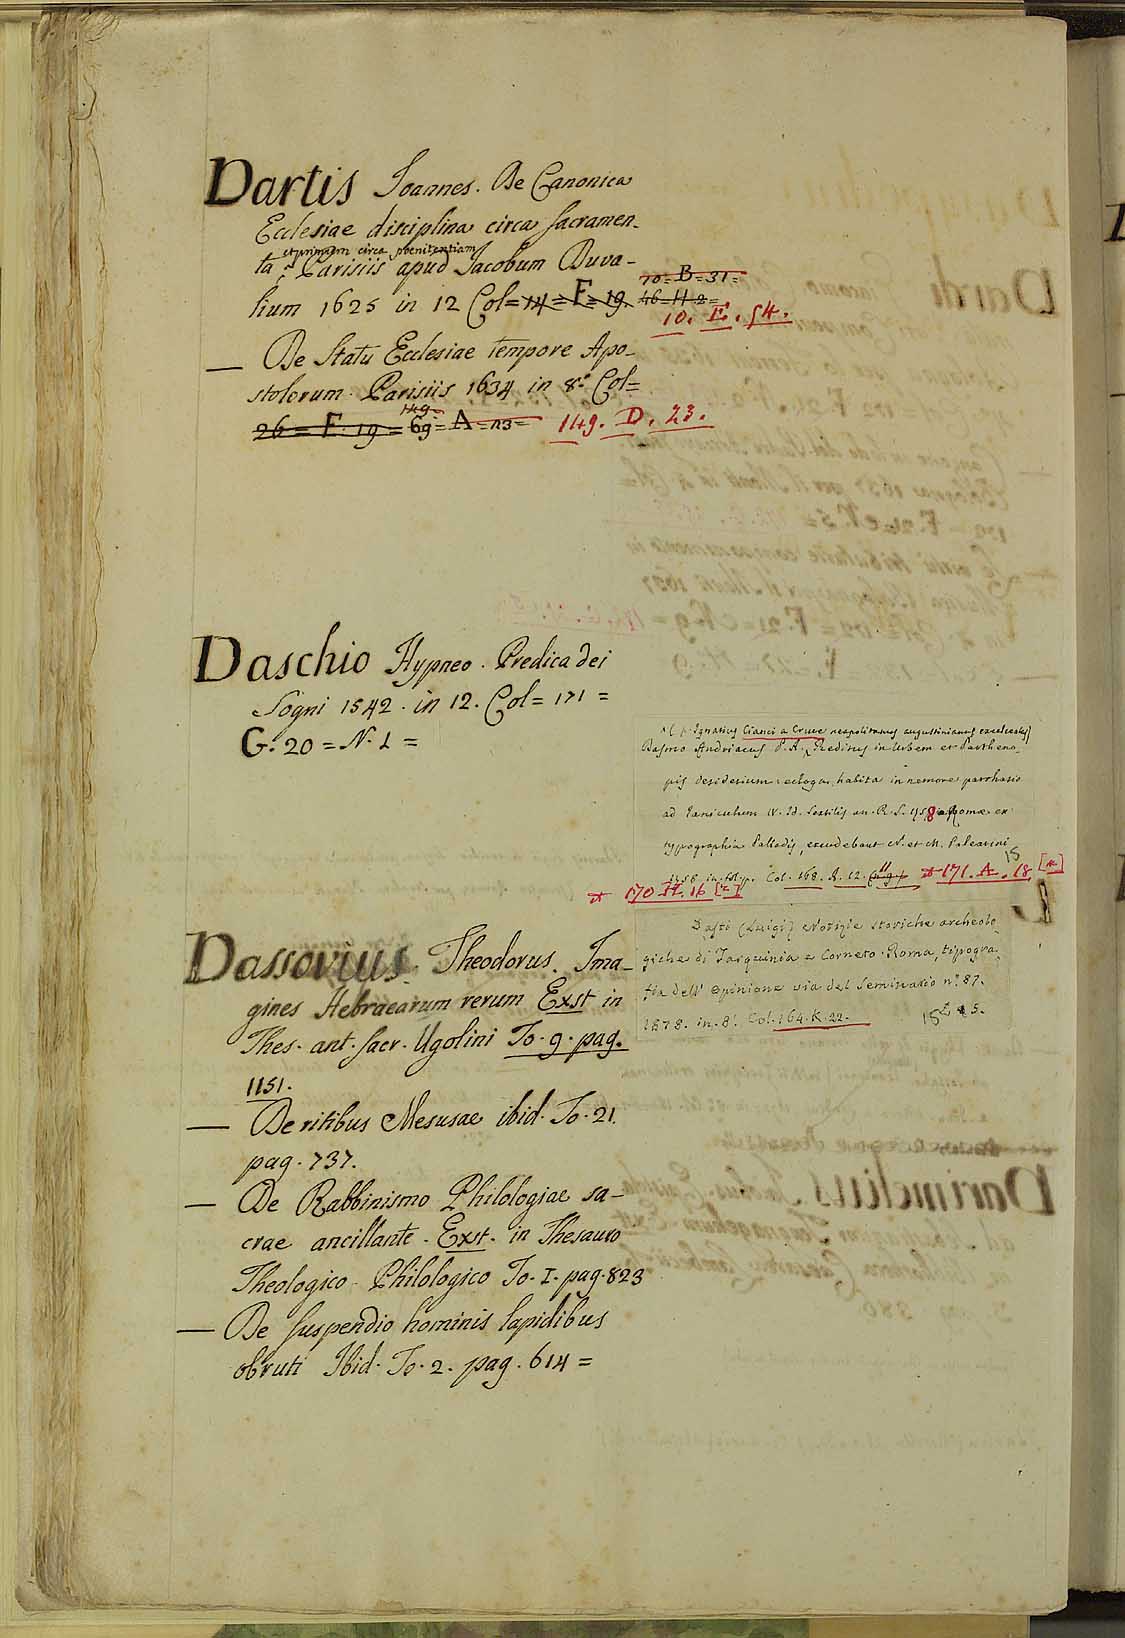 Dartis Joannes. De Canonica
Ecclesiae disciplina circa sacramen-
et primum circa poenitentiam
ta Parisiis apud Jacobum Duva-
lium 1625 in 12 Col=14=F=19. 46=H 2=
70=B=31=
10. E. 54.
— De Statu Ecclesiae tempore Apo-
stolorum. Parisiis 1634 in 8.º Col=
149.
26=F. 19= 69= A=23= 149. D. 23.
Daschio Hypneo. Predica dei
Sogni 1542. in 12. Col= 171=
G. 20=N. 1=
Ignatius Cianci a Cruce neapolitanus augustinianus excalceatus
Dasmo Andriacus P. A. Reditus in Urbem et Partheno-
pis desiderium: ecloga habita in nemore parrhasio
ad Janiculum IV. Id. Sextilis an. R. S. 1758 Romae ex
typographia Palladis, excudebant N. et M. Palearini
1758 in Col. 168. A. 12. 171. A. 18. [4]
15
170 H. 16 [2]
Dasti (Luigi) Notizie storiche archeolo-
giche di Tarquinia e Corneto. Roma, tipogra-
fia dell' Opinione via del Seminario n.º 87.
1878. in. 8.º Col. 164. K. 22.
Dassovius Theodorus. Ima-
gines Hebraearum rerum Exst in
Thes. ant. sacr. Ugolini To. 9. pag.
1151.
— De ritibus Mesusae ibid. To. 21.
pag. 737.
— De Rabbinismo Philologiae sa-
crae ancillante. Exst. in Thesauro
Theologico-Philologico To. I. pag. 823
— De suspendio hominis lapidibus
obruti Ibid. To. 2. pag. 614=